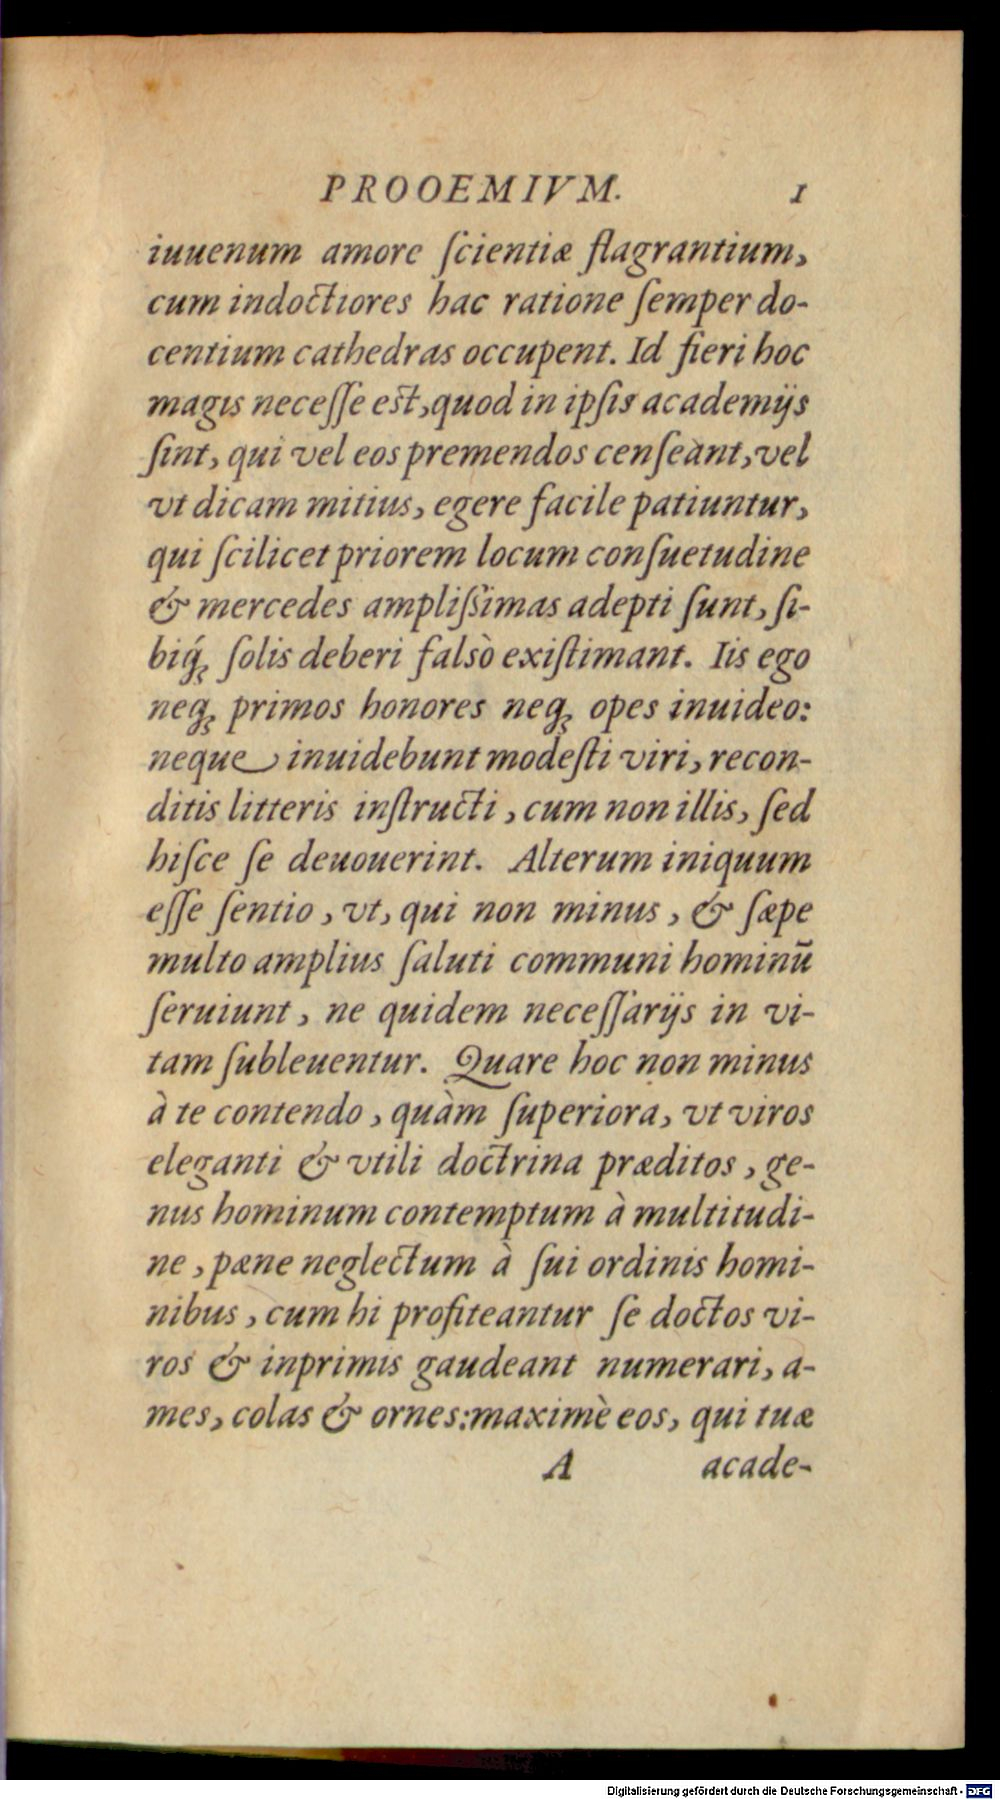 PROOEMIVM. 1
iuuenum amore ſcientiæ flagrantium,
cum indoctiores hac ratione ſemper do-
centium cathedras occupent. Id fieri hoc
magis neceſſe est, quod in ipſis academijs
ſint, qui vel eos premendos cenſeant, vel
vt dicam mitius, egere facile patiuntur,
qui ſcilicet priorem locum conſuetudine
& mercedes ampliſsimas adepti ſunt, ſi-
biq́; ſolis deberi falsò exiſtimant. Iis ego
neq; primos honores neq; opes inuideo:
neque inuidebunt modeſti viri, recon-
ditis litteris inſtructi, cum non illis, ſed
hiſce ſe deuouerint. Alterum iniquum
eſſe ſentio, vt, qui non minus, & ſæpe
multo amplius ſaluti communi hominū
ſeruiunt, ne quidem neceſſarijs in vi-
tam ſubleuentur. Quare hoc non minus
à te contendo, quàm ſuperiora, vt viros
eleganti & vtili doctrina præditos, ge-
nus hominum contemptum à multitudi-
ne, pæne neglectum à ſui ordinis homi-
nibus, cum hi profiteantur ſe doctos vi-
ros & inprimis gaudeant numerari, a-
mes, colas & ornes: maximè eos, qui tuæ
A acade-
Digitalisierung gefördert durch die Deutsche Forschungsgemeinschaft - DFG